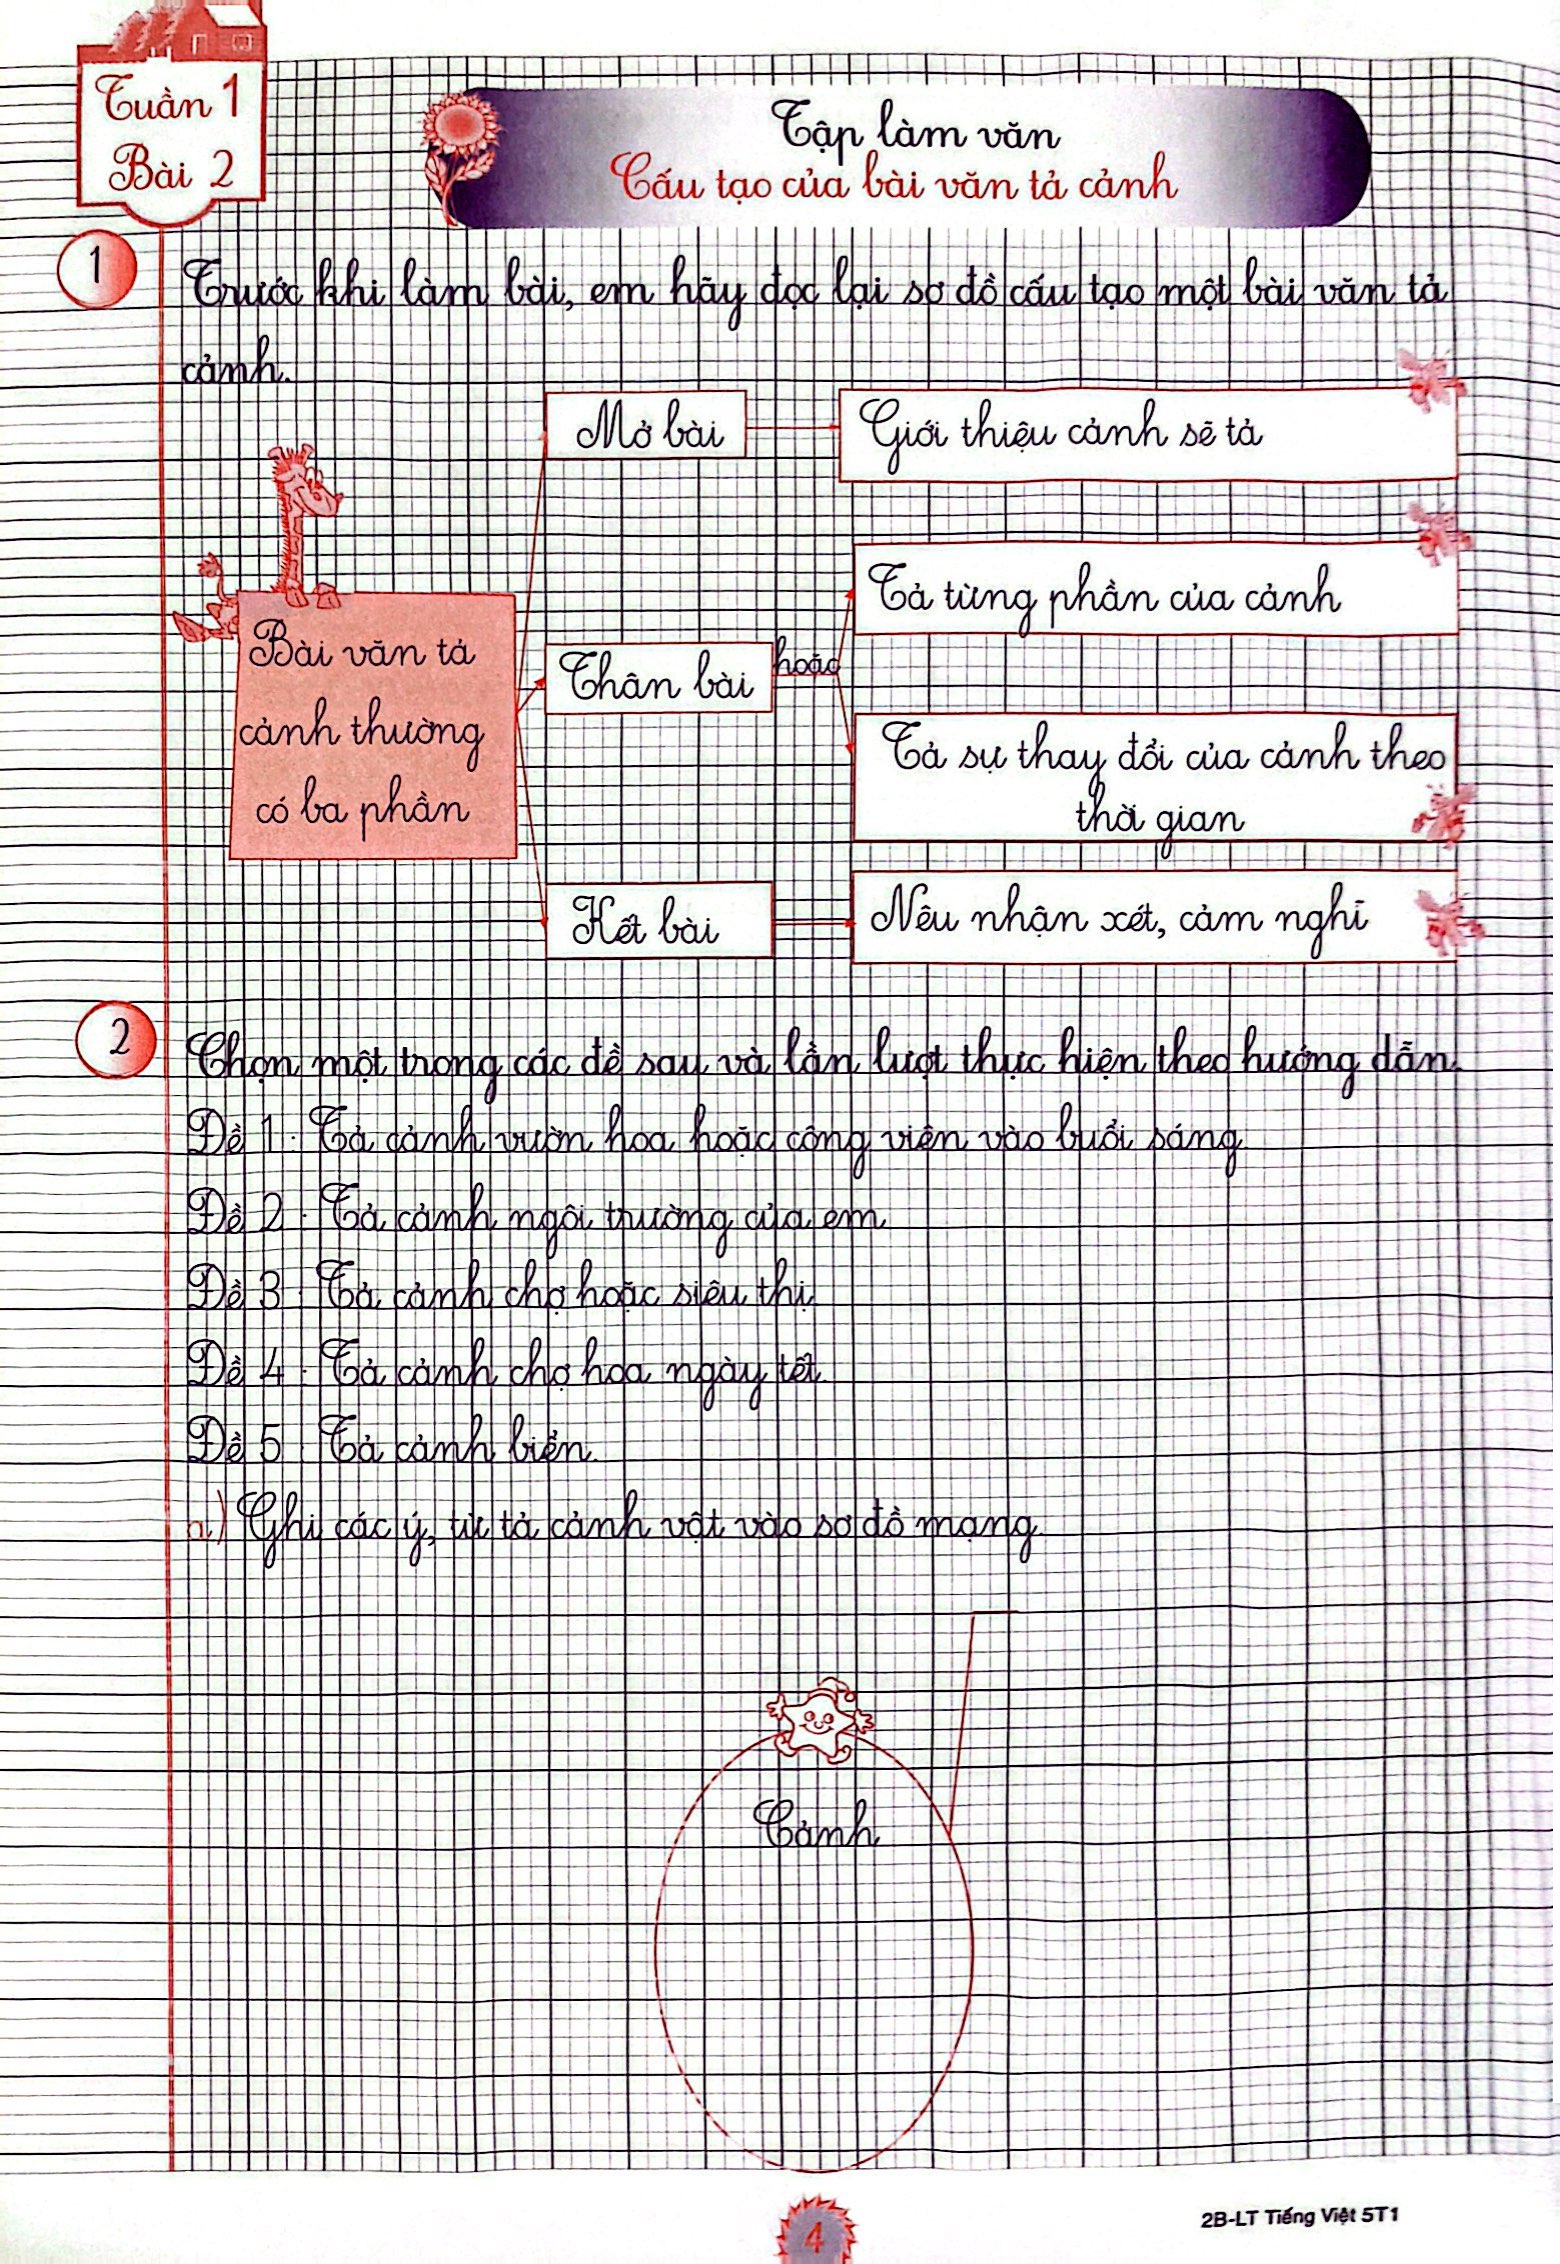 Tuần 1
Bài 2
Tập làm văn
Cấu tạo của bài văn tả cảnh
1
Trước khi làm bài, em hãy đọc lại sơ đồ cấu tạo một bài văn tả
cảnh.
Mở bài
Giới thiệu cảnh sẽ tả
Bài văn tả
cảnh thường
có ba phần
Thân bài
hoặc
Tả từng phần của cảnh
Tả sự thay đổi của cảnh theo
thời gian
Kết bài
Nêu nhận xét, cảm nghĩ
2
Chọn một trong các đề sau và lần lượt thực hiện theo hướng dẫn.
Đề 1: Tả cảnh vườn hoa hoặc công viên vào buổi sáng.
Đề 2: Tả cảnh ngôi trường của em.
Đề 3: Tả cảnh chợ hoặc siêu thị.
Đề 4: Tả cảnh chợ hoa ngày tết.
Đề 5: Tả cảnh biển.
a) Ghi các ý, từ tả cảnh vật vào sơ đồ mạng.
Cảnh
4
2B-LT Tiếng Việt 5T1